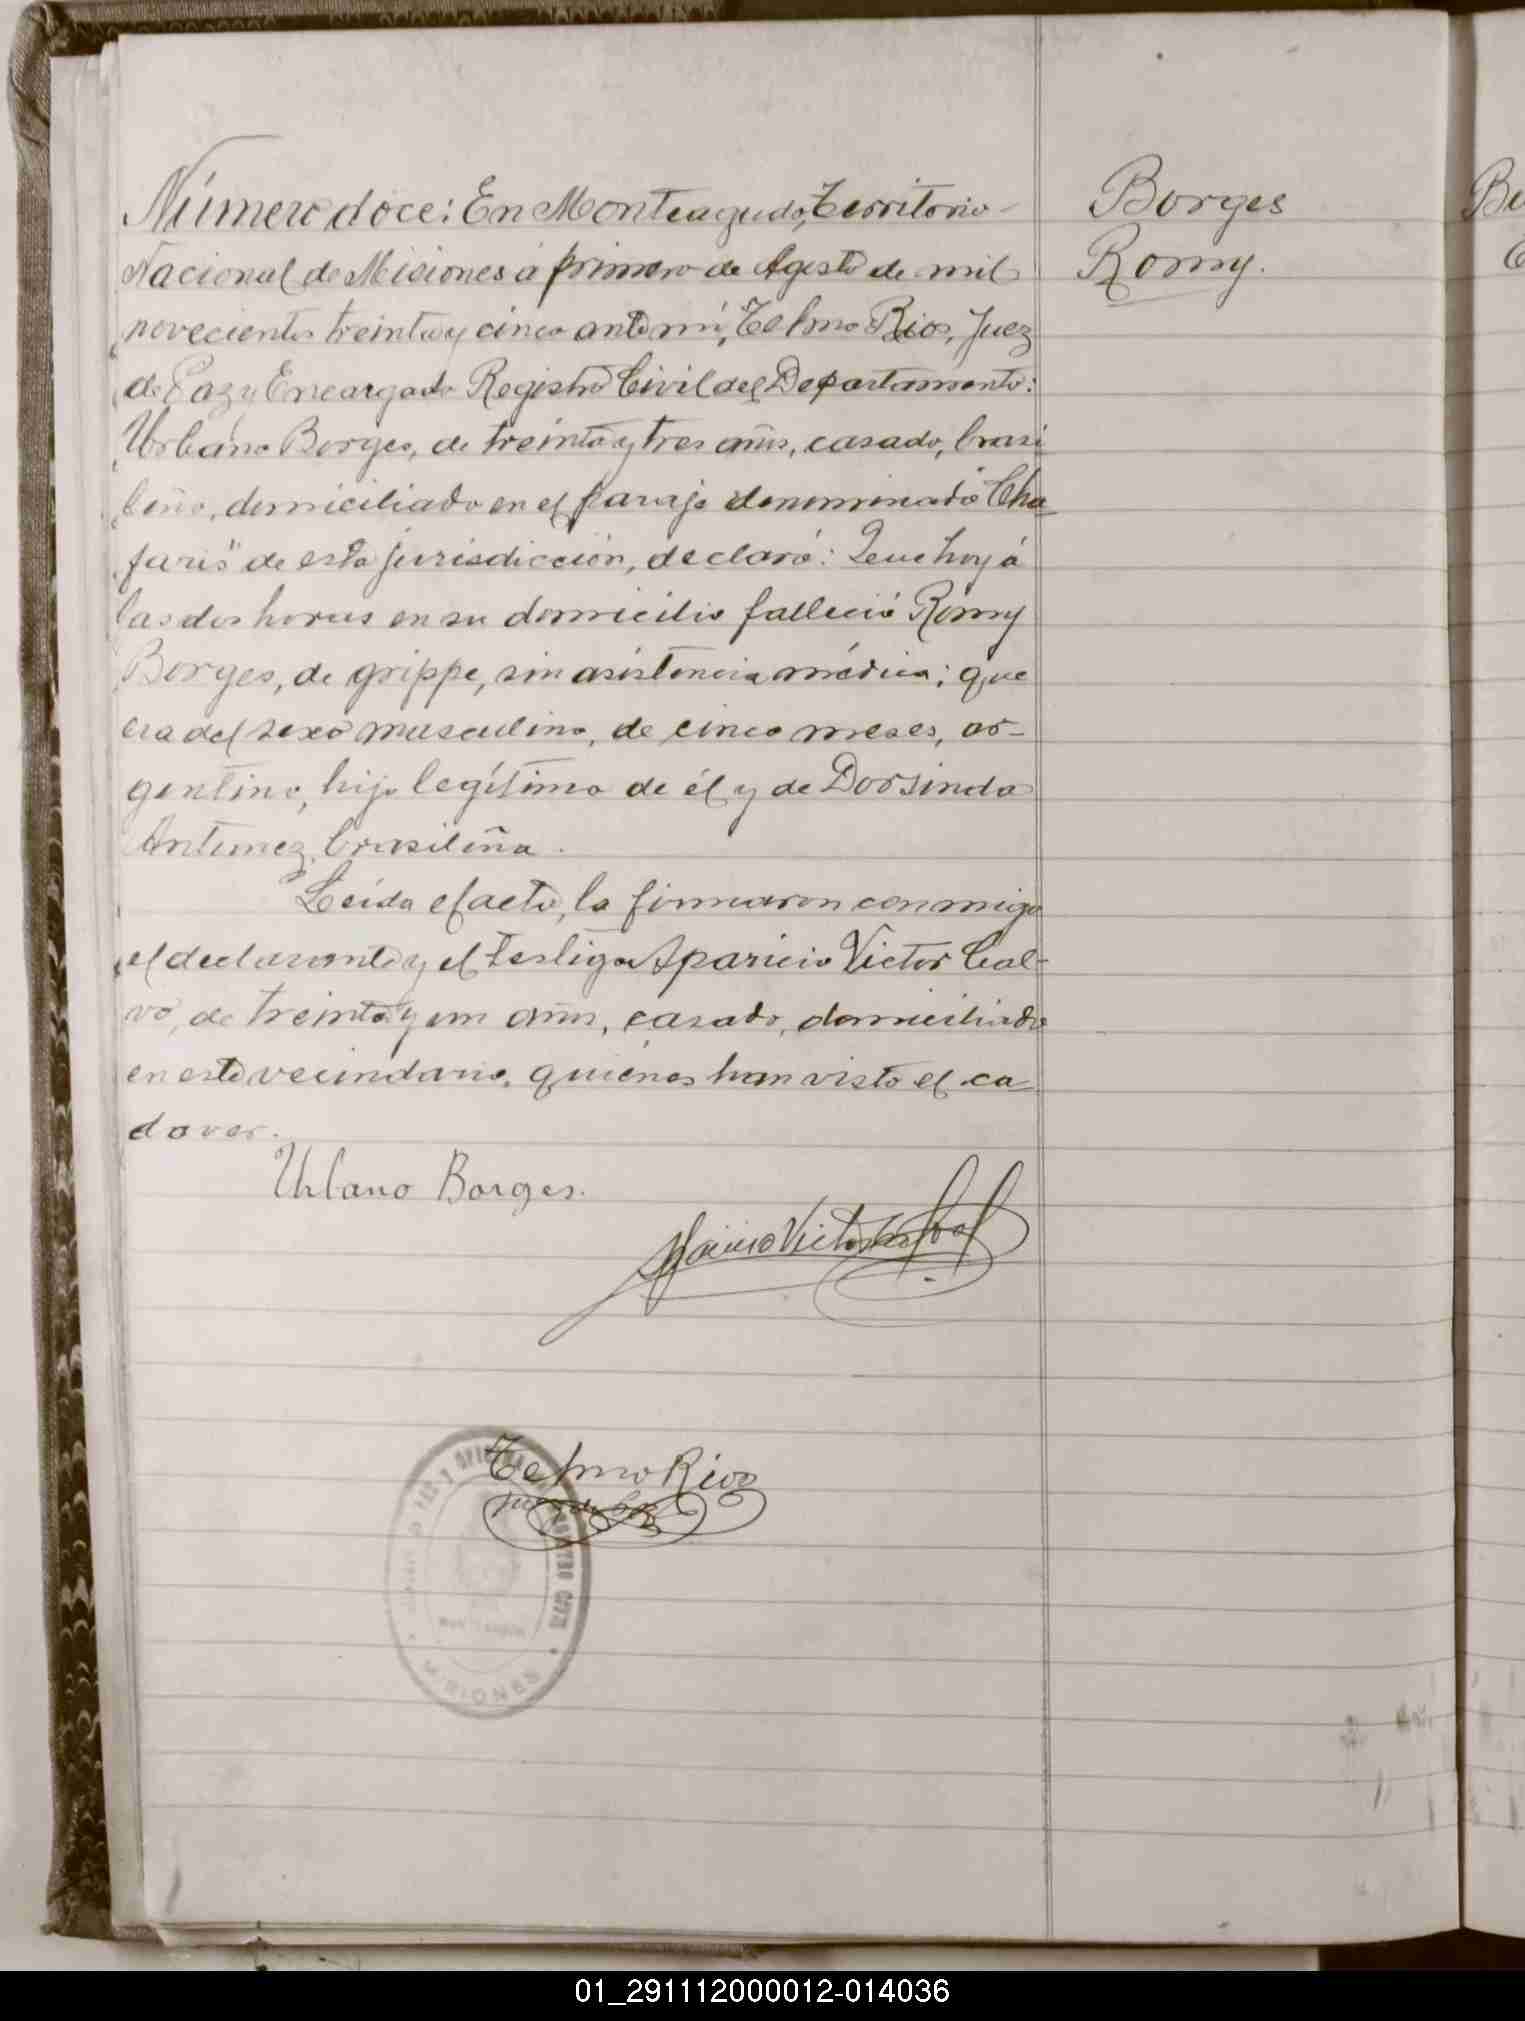 Número doce: En Monteagudo, Territorio
Nacional de Misiones á primero de Agosto de mil
novecientos treinta y cinco ante mí, Telmo Rios, Juez
de Paz y Encargado Registro Civil del Departamento:
Urbano Borges, de treinta y tres años, casado, brasi
leño, domiciliado en el paraje denominado "Cha
faris" de esta jurisdicción, declaró: Que hoy á
las dos horas en su domicilio falleció Romy
Borges, de grippe, sin asistencia médica; que
era del sexo masculino, de cinco meses, ar-
gentino, hijo legítimo de él y de Dorsinda
Antunez, brasileña.
Leída el acta, la firmaron conmigo
el declarante y el testigo Aparicio Victor Cal-
vo, de treinta y un años, casado, domiciliado
en este vecindario, quiénes han visto el ca
daver.
Urbano Borges.
Aparicio Victor Calvo
Telmo Rios
Juez de Paz
REGISTRO CIVIL
MISIONES
Borges
Romy.
01_291112000012-014036